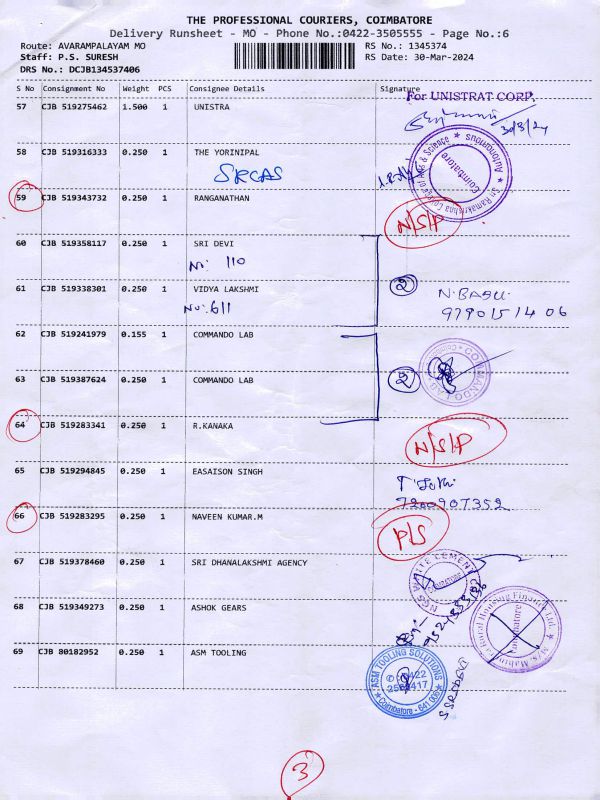 THE PROFESSIONAL COURIERS, COIMBATORE
Delivery Runsheet - MO - Phone No.:0422-3505555 - Page No.:6
Route: AVARAMPALAYAM MO
RS No.: 1345374
Staff: P.S. SURESH
RS Date: 30-Mar-2024
DRS No.: DCJB134537406
S No Consignment No Weight PCS Consignee Details Signature
For UNISTRAT CORP.
57 CJB 519275462 1.500 1 UNISTRA
30/3/24
58 CJB 519316333 0.250 1 THE YORINIPAL
SRCAS
Sri Ramakrishna College of Arts & Science ★ Autonomous ★
Coimbatore
59 CJB 519343732 0.250 1 RANGANATHAN
N/S/P
60 CJB 519358117 0.250 1 SRI DEVI
No: 110
61 CJB 519338301 0.250 1 VIDYA LAKSHMI
2 N. BABU.
No: 611
9790151406
62 CJB 519241979 0.155 1 COMMANDO LAB
COMMANDO LAB
63 CJB 519387624 0.250 1 COMMANDO LAB
2
64 CJB 519283341 0.250 1 R.KANAKA
N/S/P
65 CJB 519294845 0.250 1 EASAISON SINGH
7200907352
66 CJB 519283295 0.250 1 NAVEEN KUMAR.M
P/S
67 CJB 519378460 0.250 1 SRI DHANALAKSHMI AGENCY
WHITE CEMENT
COIMBATORE
68 CJB 519349273 0.250 1 ASHOK GEARS
Rural Housing Finance Ltd.
Coimbatore
69 CJB 80182952 0.250 1 ASM TOOLING
ASM TOOLING SOLUTIONS
0422
Coimbatore - 641 006
3